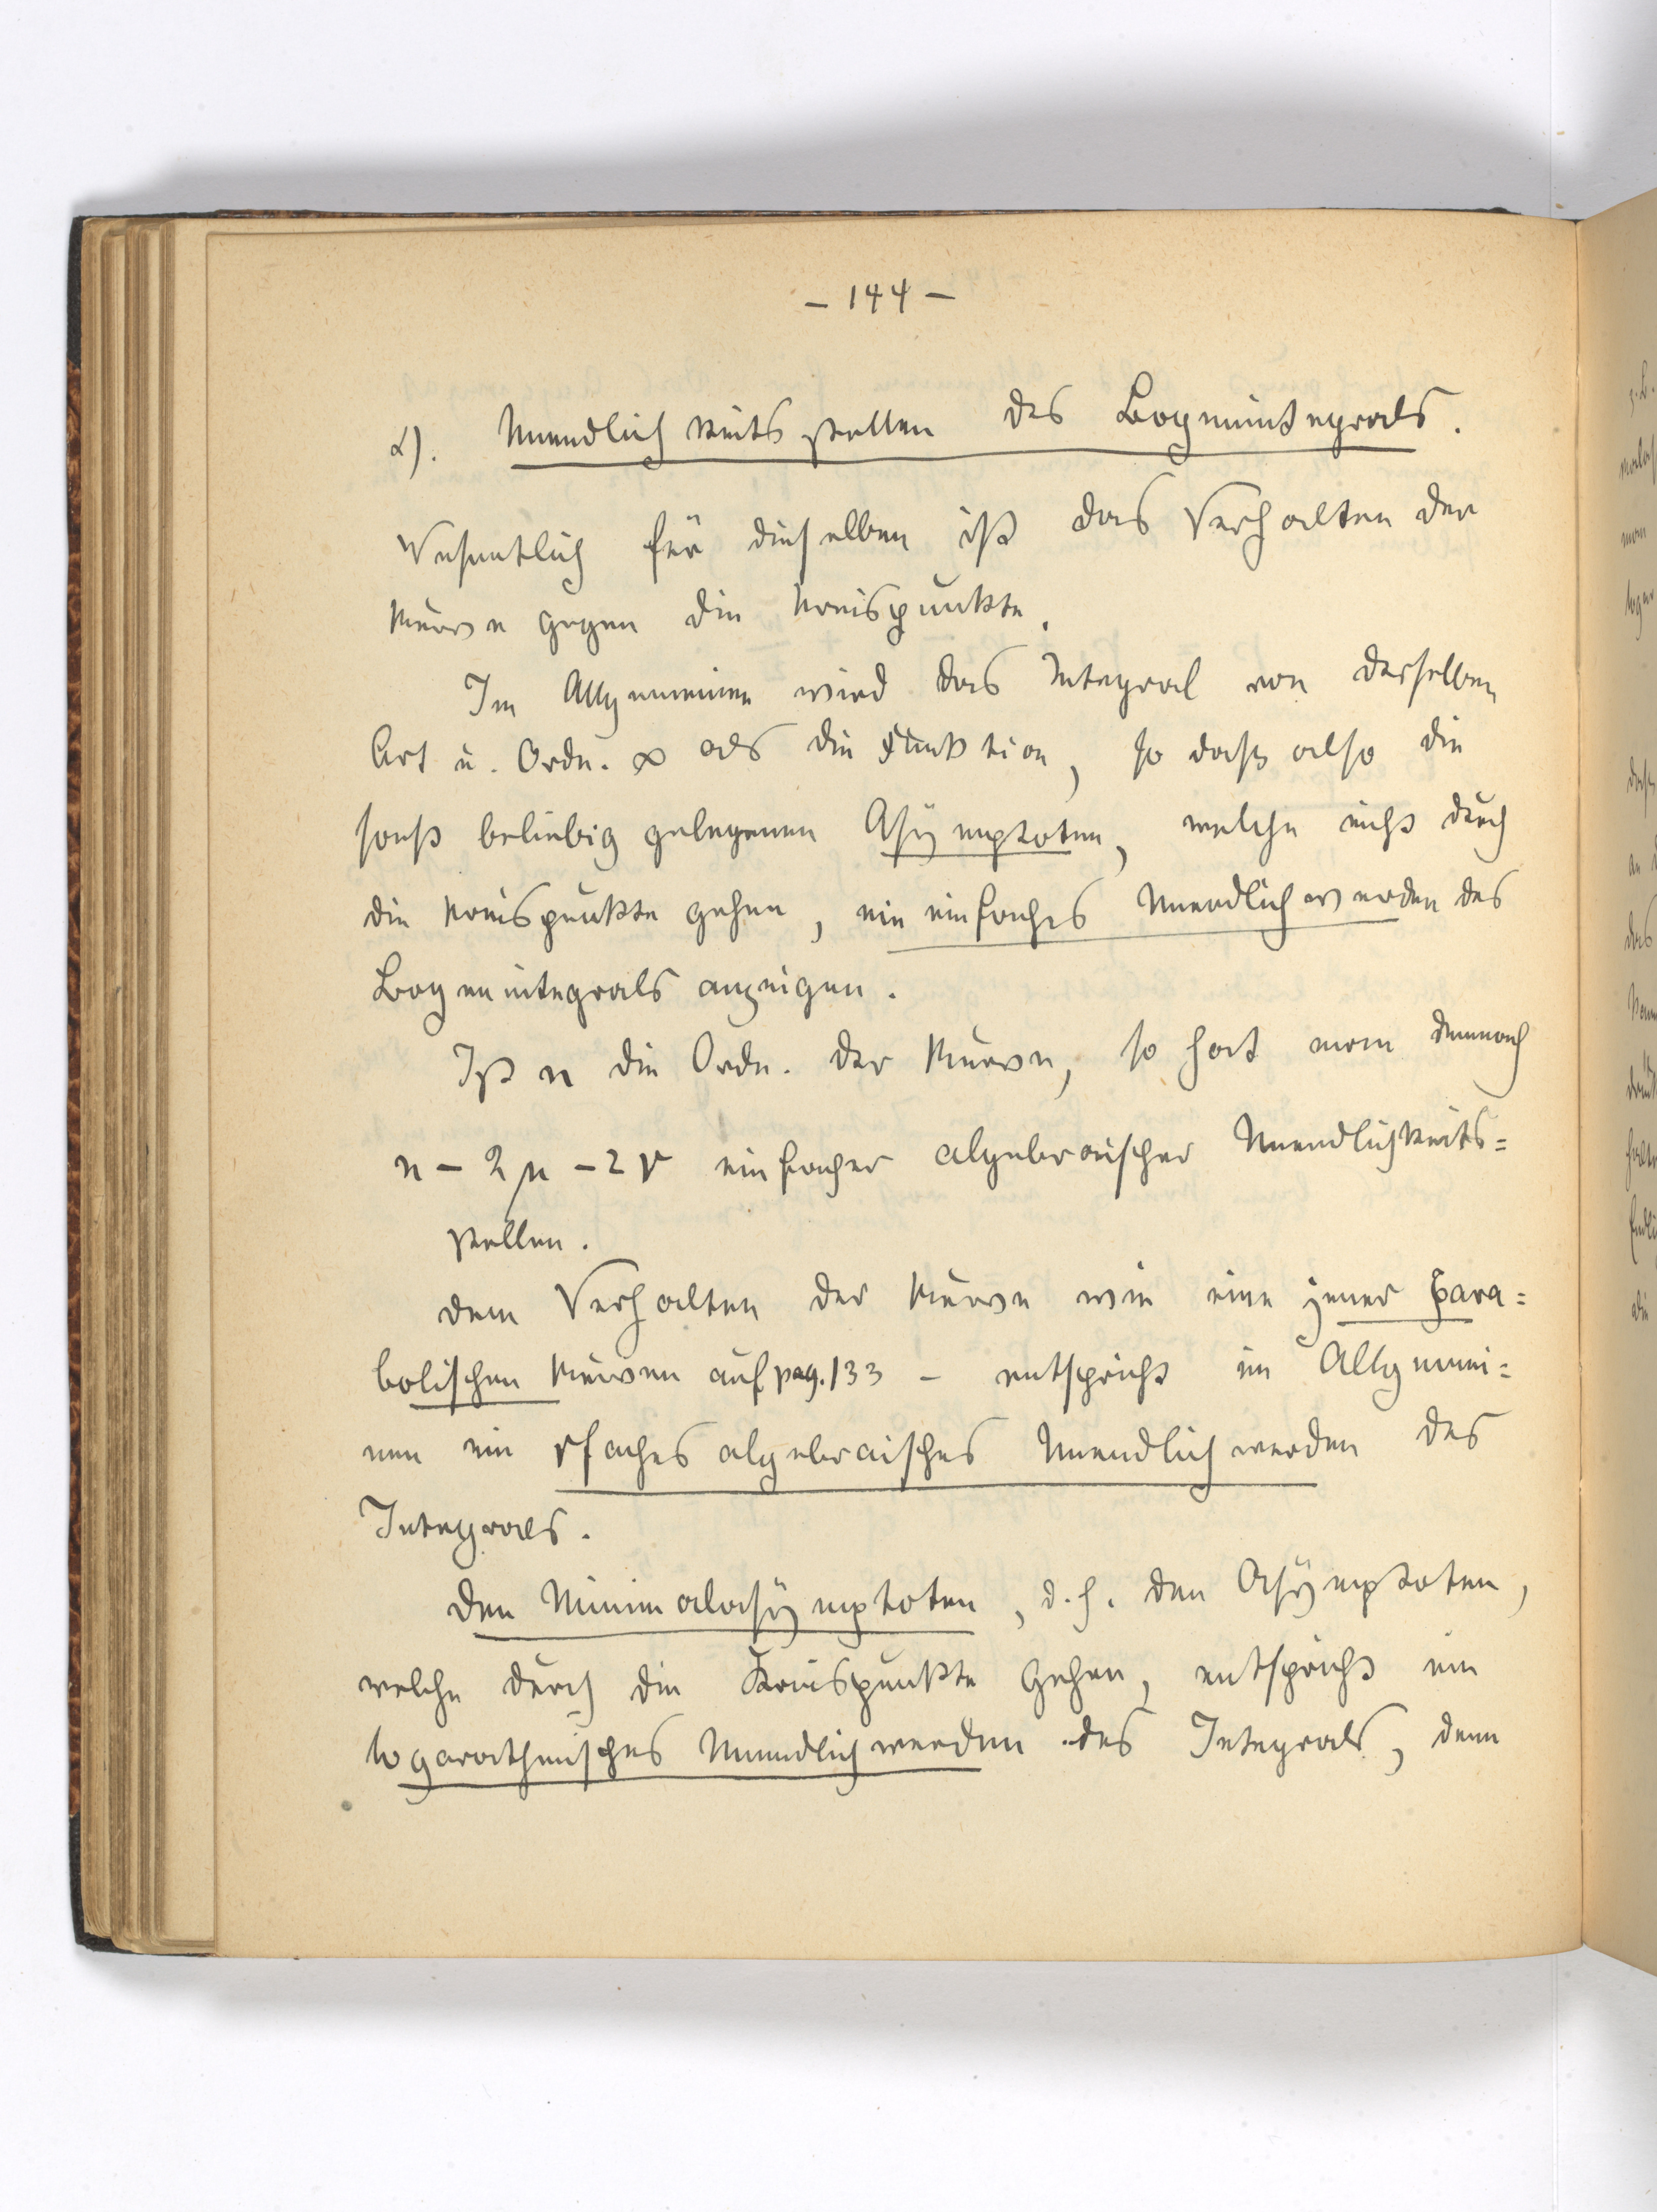 - 144 -
α). Unendlichkeitsstellen des Bogenintegrals.
Wesentlich für dieselben ist das Verhalten der
Kurve gegen die Kreispunkte.
Im Allgemeinen wird das Integral von derselben
Art u. Ordn. ∞ als die Funktion, so daß also die
sonst beliebig gelegenen Asymptoten, welche nicht durch
die Kreispunkte gehen, ein einfaches Unendlichwerden des
Bogenintegrals anzeigen.
Ist n die Ordn. der Kurve, so hat man demnach
n - 2μ - 2r einfacher algebraischer Unendlichkeits=
stellen.
Dem Verhalten der Kurve wie eine jener para=
bolischen Kurven auf pag. 133 - entspricht im Allgemei=
nen ein rfaches algebraisches Unendlichwerden des
Integrals.
Den Minimalasymptoten, d.h. den Asymptoten,
welche durch die Kreispunkte gehen, entspricht ein
logarathmisches Unendlichwerden des Integrals, denn